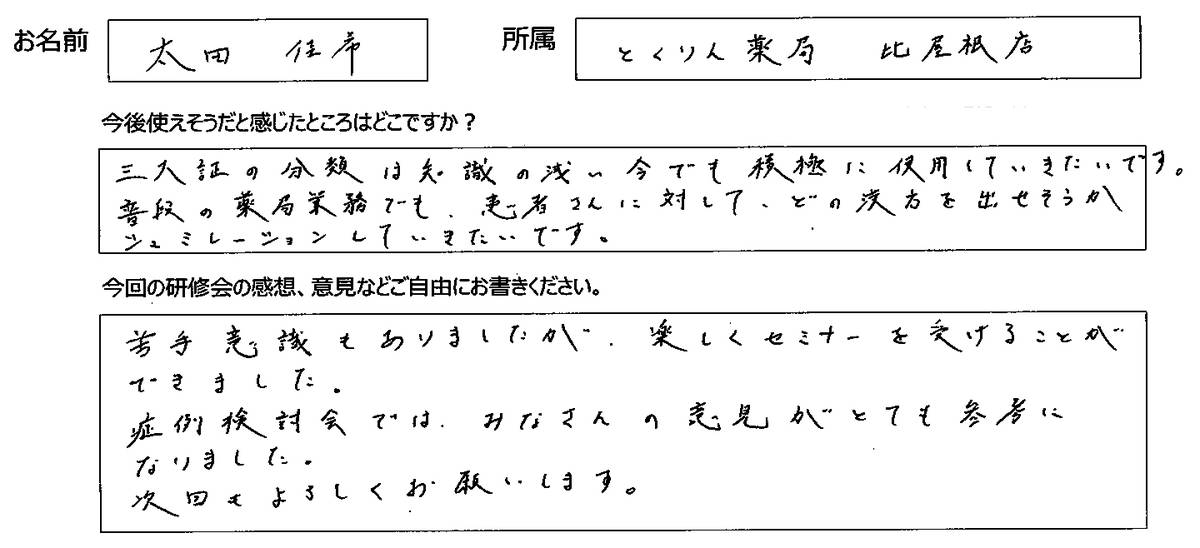 お名前 太田 佳希 所属 とくりん薬局 比屋根店
今後使えそうだと感じたところはどこですか？
三大証の分類は知識の浅い今でも積極に使用していきたいです。
普段の薬局業務でも、患者さんに対して、どの漢方を出せそうか
シュミレーションしていきたいです。
今回の研修会の感想、意見などご自由にお書きください。
苦手意識もありましたが、楽しくセミナーを受けることが
できました。
症例検討会では、みなさんの意見がとても参考に
なりました。
次回もよろしくお願いします。